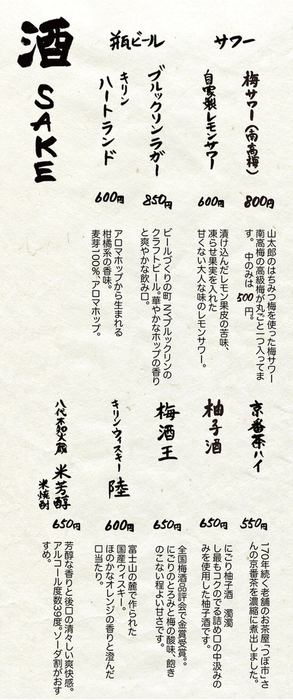 酒
SAKE
サワー
梅サワー(南高梅)
800円
山太郎のはちみつ梅を使った梅サワー
南高梅の高級梅が丸ごと一つ入ってま
す。中のみは500円。
自家製レモンサワー
600円
漬け込んだレモン果皮の苦味、
凍らせ果実を入れた
甘くない大人な味のレモンサワー。
瓶ビール
ブルックリンラガー
850円
ビールづくりの町NYブルックリンの
クラフトビール。華やかなホップの香り
と爽やかな飲み口。
キリン
ハートランド
600円
アロマホップから生まれる
柑橘系の香味。
麦芽100%、アロマホップ。
京番茶ハイ
550円
170年続く老舗のお茶屋「つぼ市」さ
んの京番茶を濃縮に煮出しました。
柚子酒
650円
にごり柚子酒 濁濁
し最もコクのでる詰め口の中汲みの
みを使用した柚子酒です。
梅酒王
650円
全国梅酒品評会で金賞受賞。
にごりのとろみと梅の酸味、飽き
のこない程よい甘さです。
キリンウィスキー 陸
600円
富士山の麓で作られた
国産ウィスキー。
ほのかなオレンジの香りと澄んだ
口当たり。
八代不知火蔵 米芳醇
米焼酎
650円
芳醇な香りと後口の清々しい爽快感。
アルコール度数39度。ソーダ割がおす
すめ。